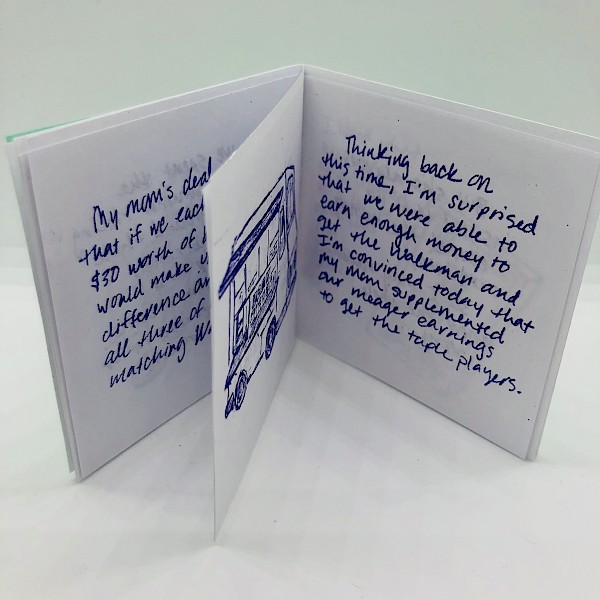 My mom's deal
that if we each
$30 worth of
would make
difference
all three of
matching
Thinking back on
this time, I'm surprised
that we were able to
earn enough money to
get the Walkman and
I'm convinced today that
my mom supplemented
our meager earnings
to get the tape players.